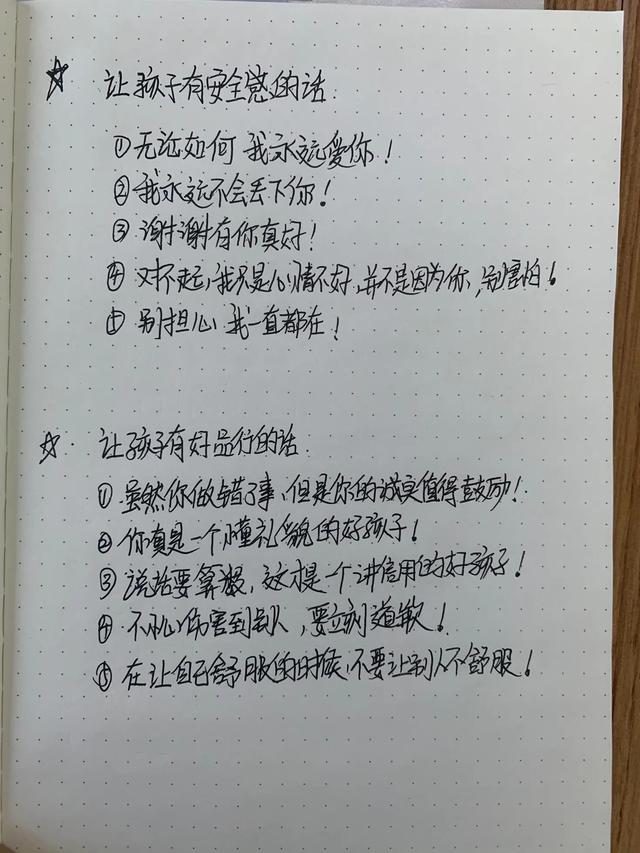 ☆ 让孩子有安全感的话
①无论如何 我永远爱你！
②我永远不会丢下你！
③谢谢有你真好！
④对不起，我只是心情不好，并不是因为你，别害怕！
⑤别担心 我一直都在！
☆ 让孩子有好品行的话
①虽然你做错了事，但是你的诚实值得鼓励！
②你真是一个懂礼貌的好孩子！
③说话要算数，这才是一个讲信用的好孩子！
④不小心伤害到别人，要立刻道歉！
⑤在让自己舒服的时候，不要让别人不舒服！